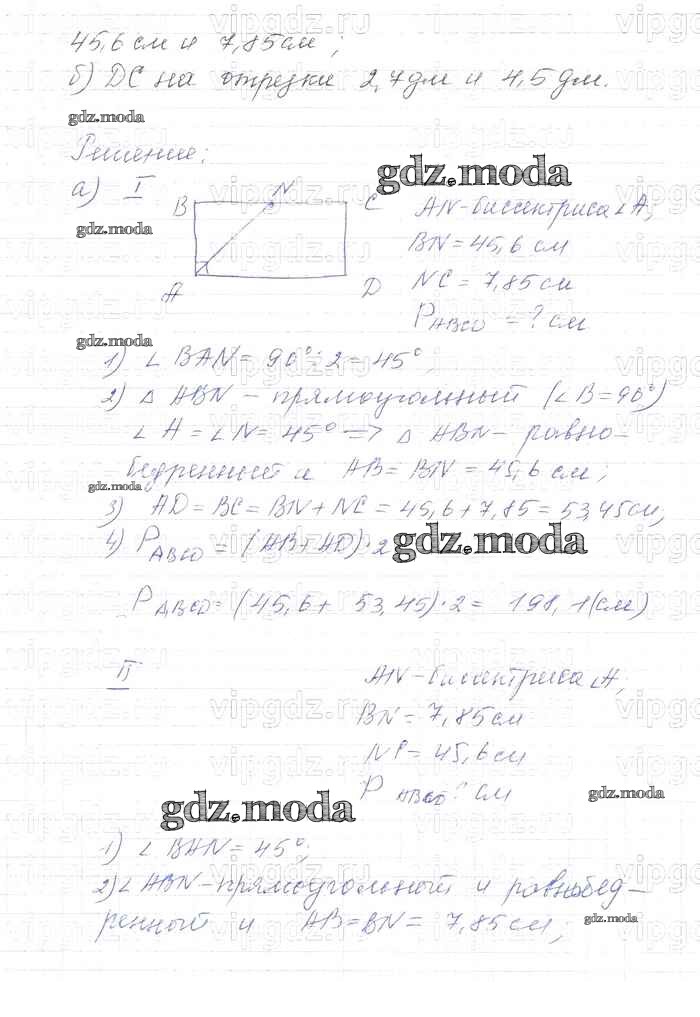 45,6 см и 7,85 см;
б) DC на отрезки 2,7 дм и 4,5 дм.
gdz.moda
Решение:
gdz.moda
а) I
B N C
A D
AN - биссектриса ∠A;
BN = 45,6 см
NC = 7,85 см
P ABCD = ? см
gdz.moda
gdz.moda
1) ∠ BAN = 90° : 2 = 45°
2) △ ABN - прямоугольный (∠B = 90°)
∠A = ∠N = 45° => △ ABN - равно-
бедренный и AB = BN = 45,6 см;
gdz.moda
3) AD = BC = BN + NC = 45,6 + 7,85 = 53,45 см;
4) P ABCD = (AB + AD) · 2
gdz.moda
P ABCD = (45,6 + 53,45) · 2 = 198,1 (см)
II
AN - биссектриса ∠A;
BN = 7,85 см
NC = 45,6 см
P ABCD ? см
gdz.moda
gdz.moda
1) ∠ BAN = 45°;
2) ∠ ABN - прямоугольный и равнобед-
ренный и AB = BN = 7,85 см;
gdz.moda
vipgdz.ru